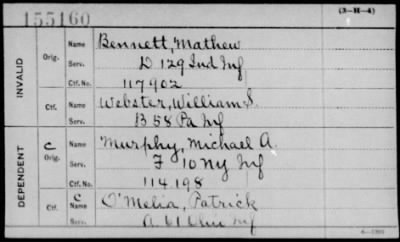 155160
(3-H-4)
INVALID
Orig.
Name Bennett, Mathew
Serv. D 129 Ind Inf
Ctf. No. 117902
Ctf.
Name Webster, William S.
Serv. B 58 Pa Inf
DEPENDENT
C
Orig.
Name Murphy, Michael A.
Serv. F 10 NY Inf
Ctf. No. 114198
Ctf.
C
Name O'Melia, Patrick
Serv. A 61 Ohio Inf